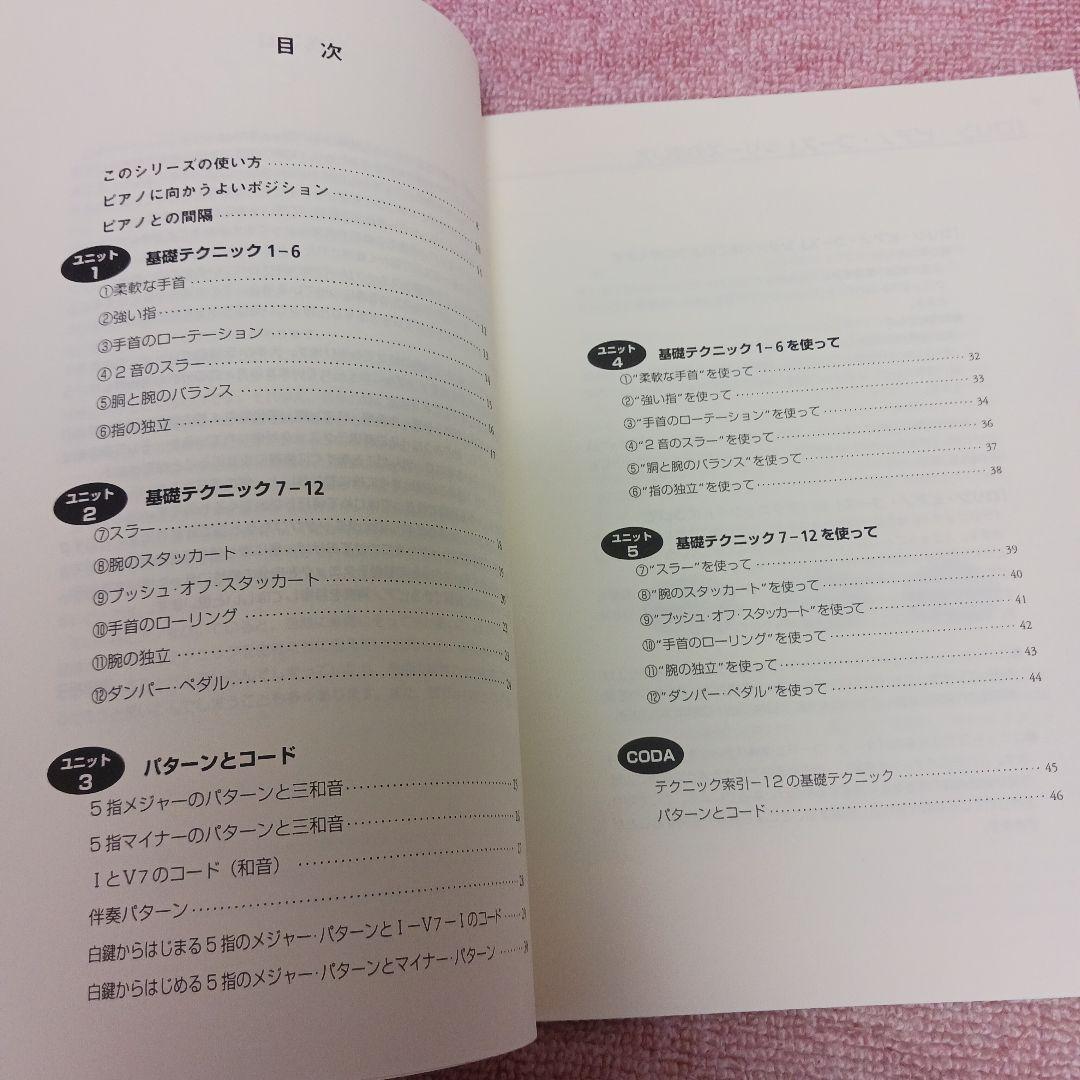 目 次
このシリーズの使い方
ピアノに向かうよいポジション
ピアノとの間隔
ユニット 1 基礎テクニック1−6
①柔軟な手首
②強い指
③手首のローテーション
④2音のスラー
⑤胴と腕のバランス
⑥指の独立
ユニット 2 基礎テクニック7−12
⑦スラー
⑧腕のスタッカート
⑨プッシュ・オフ・スタッカート
⑩手首のローリング
⑪腕の独立
⑫ダンパー・ペダル
ユニット 3 パターンとコード
5指メジャーのパターンと三和音
5指マイナーのパターンと三和音
ⅠとV7のコード（和音）
伴奏パターン
白鍵からはじまる5指のメジャー・パターンとⅠ−V7−Ⅰのコード
白鍵からはじめる5指のメジャー・パターンとマイナー・パターン
ユニット 4 基礎テクニック1−6を使って
①"柔軟な手首"を使って 32
②"強い指"を使って 33
③"手首のローテーション"を使って 34
④"2音のスラー"を使って 36
⑤"胴と腕のバランス"を使って 37
⑥"指の独立"を使って 38
ユニット 5 基礎テクニック7−12を使って
⑦"スラー"を使って 39
⑧"腕のスタッカート"を使って 40
⑨"プッシュ・オフ・スタッカート"を使って 41
⑩"手首のローリング"を使って 42
⑪"腕の独立"を使って 43
⑫"ダンパー・ペダル"を使って 44
CODA
テクニック索引−12の基礎テクニック 45
パターンとコード 46